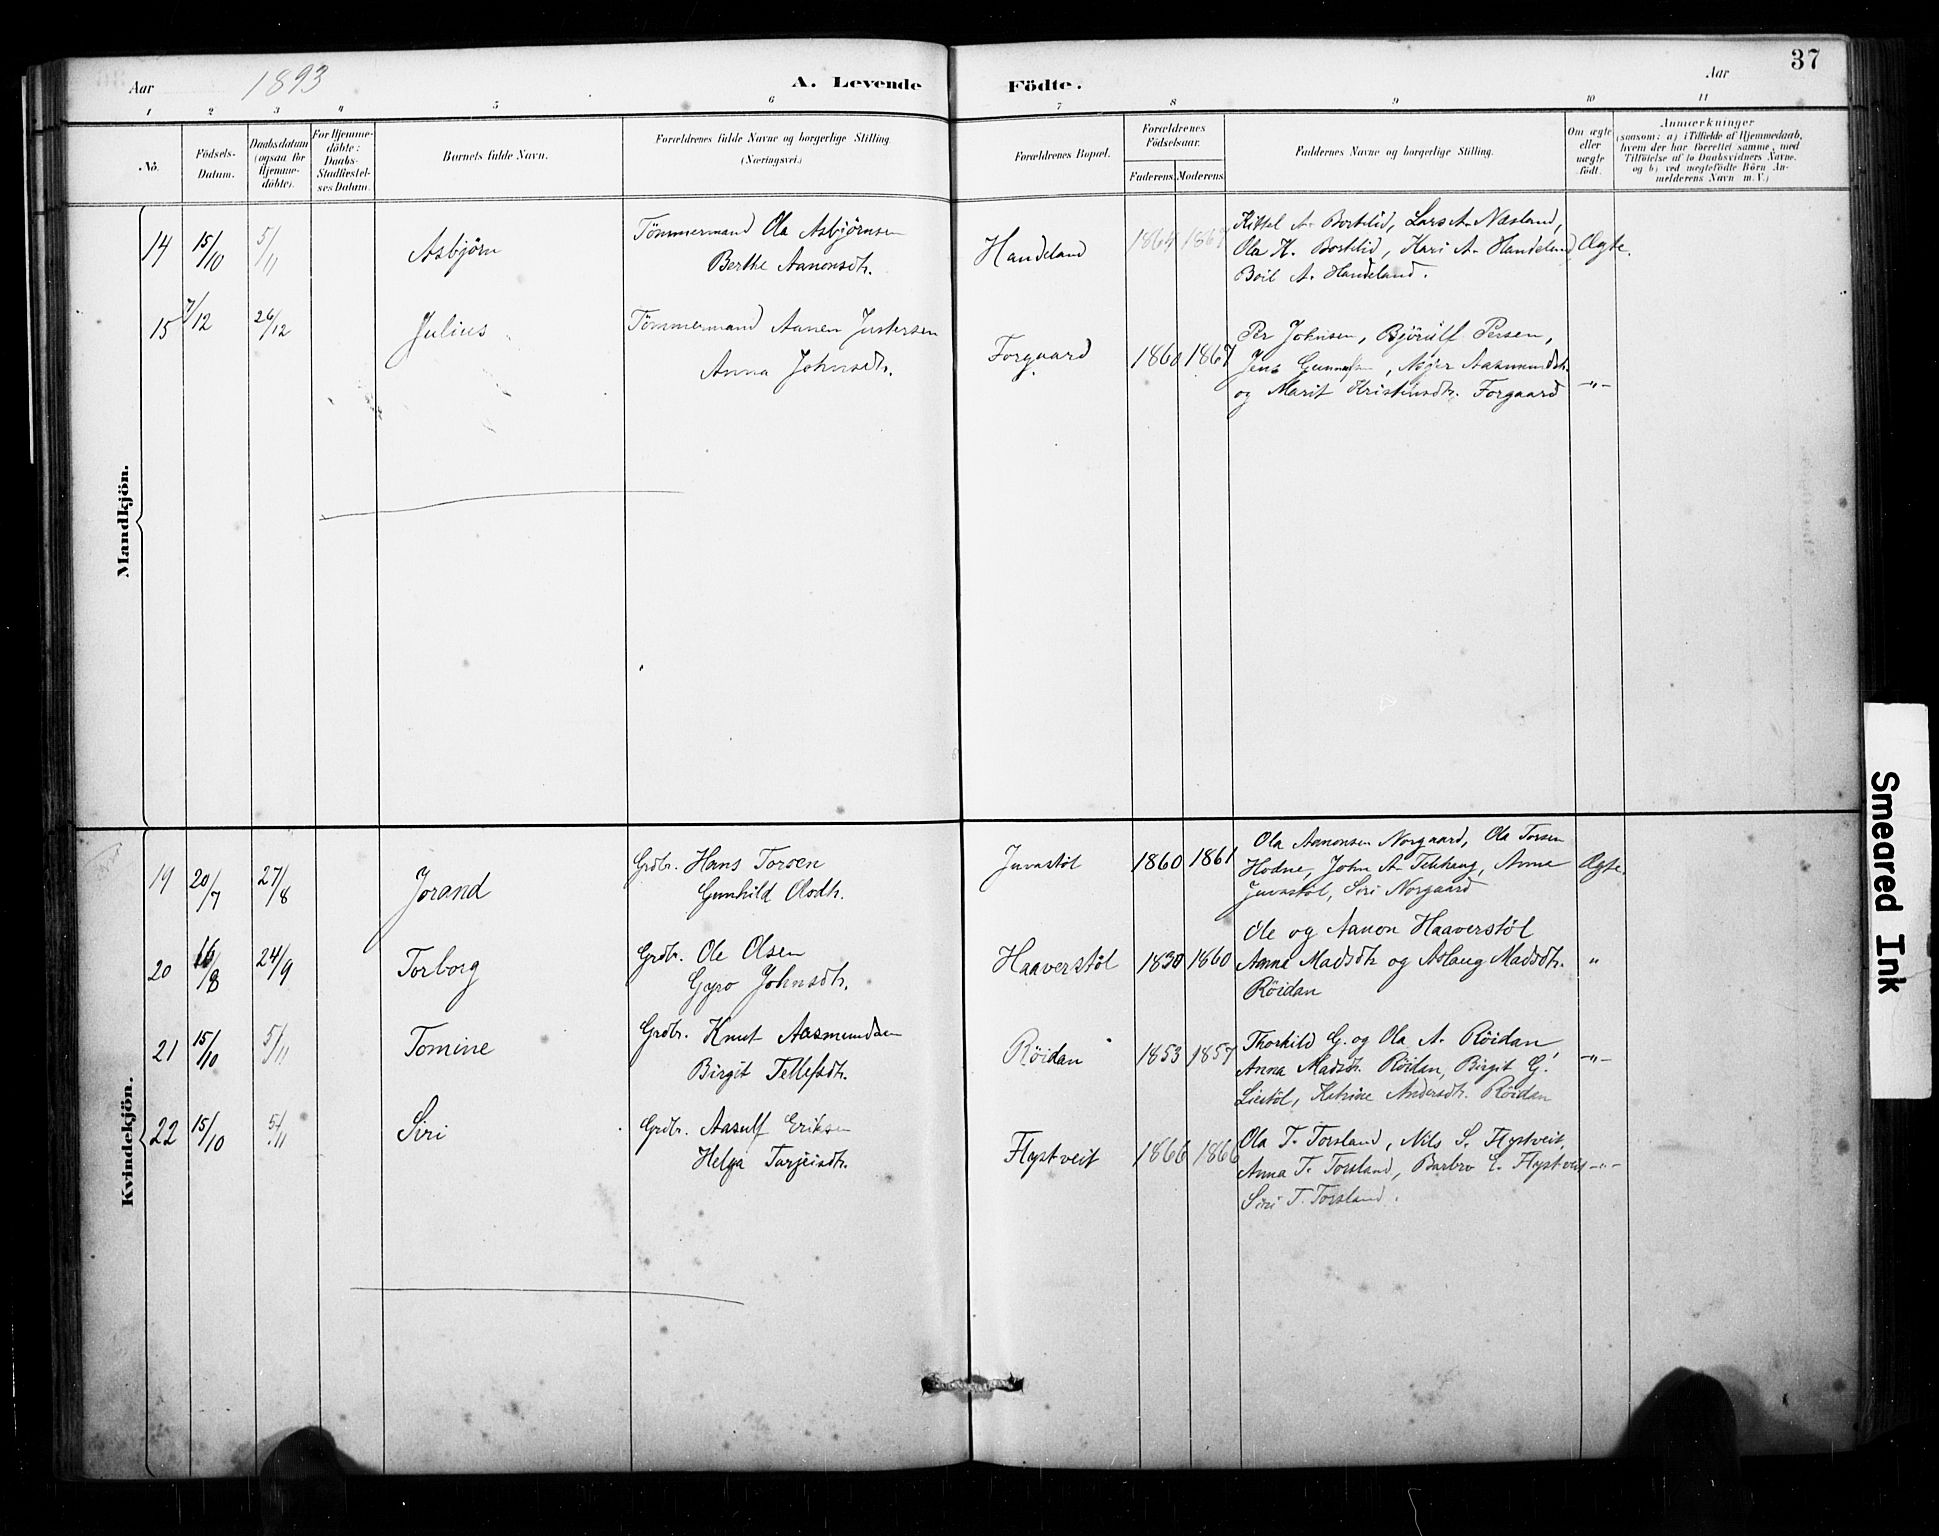 37
Aar 1893 A. Levende Födte. Aar
1 2 3 4 5 6 7 8 9 10 11
No.
Födsels-
Datum.
Daabsdatum
(ogsaa for
Hjemme-
döbte).
For Hjemme-
döbte:
Daabs-
Stadfæstel-
ses Datum.
Barnets fulde Navn.
Forældrenes fulde Navne og borgerlige Stilling
(Næringsvei.)
Forældrenes Bopæl.
Forældrenes
Födselsaar.
Faderens Moderens
Faddernes Navne og borgerlige Stilling.
Om ægte
eller
uægte
født.
Anmærkninger
(saasom: a) i Tilfælde af Hjemmedaab,
hvem der har forrettet samme, med
Tilföielse af to Daabsvidners Navne.
og b) ved uægtefödte Börn An-
melderens Navn m. V.)
Mandkjön.
14 15/10 5/11 Asbjørn
Tömmermand Ola Asbjørnsen
Berthe Aanonsdtr.
Handeland 1864 1867
Kittel A. Borklid, Lars A. Næsland,
Ola K. Borklid, Kari A. Handeland Ægte.
Boil A. Handeland.
15 7/12 26/12 Julius
Tömmermand Aanen Justersen
Anna Johnsdtr.
Forgaard 1867
Per Johnsen, Bjørulf Persen,
Jens , Asmundsdtr.
og Marit Kristensdtr. Forgaard -"-
Kvindekjön.
19 20/7 27/8 Jorand
Grdbr. Hans Torsen
Gunhild Olsdtr.
Juvastøl 1860 1861
Ola Aanonsen Norgaard, Ola Torsen
Hodne, John A. , Anne Ægte.
Juvastøl, Siri Norgaard
20 16/8 24/9 Torborg
Grdbr. Ole Olsen
Gyro Johnsdtr.
Haaverstøl 1830 1860
Ole og Aanon Haaverstøl
Anna Madsdtr og Aslaug Madsdtr. "
Röidan
21 15/10 5/11 Tomine
Grdbr. Knut Aasmundsen
Birgit Tellefsdtr.
Röidan 1853 1857
Thorkild G. og Ola A. Röidan,
Anna Madsdtr. Röidan, Birgit G. -"-
Liestöl, Katrine Andersdtr. Röidan
22 15/10 5/11 Siri
Grdbr. Aasulf Eriksen
Helga Tarjeisdtr.
Flystveit 1866 1866
Ola T. Torsland, Nils S. Flystveit,
Anna T. Torsland, Barbro E. Flystveit -"-
Siri T. Torsland.
Smeared Ink